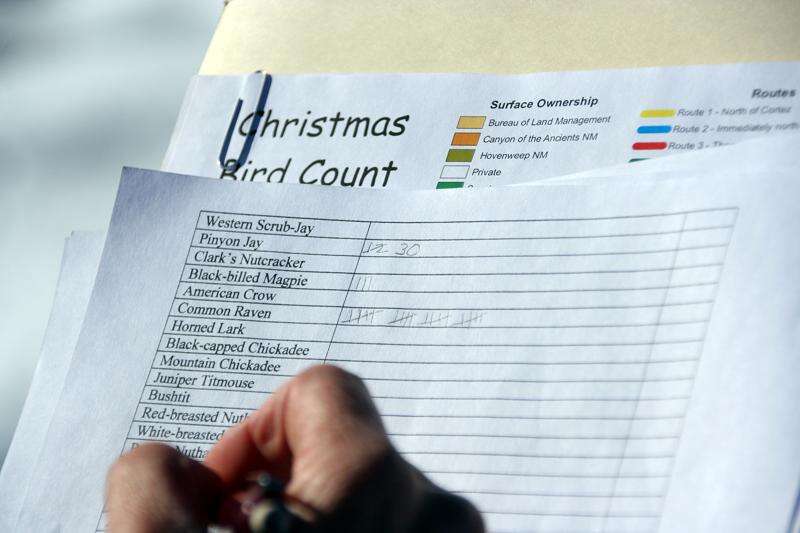 Christmas
Bird Count
Surface Ownership
Bureau of Land Management
Canyon of the Ancients NM
Hovenweep NM
Private
Routes
Route 1 - North of Cortez
Route 2 - Immediately north
Route 3 -
Western Scrub-Jay
Pinyon Jay 30
Clark's Nutcracker
Black-billed Magpie
American Crow
Common Raven
Horned Lark
Black-capped Chickadee
Mountain Chickadee
Juniper Titmouse
Bushtit
Red-breasted
White-breasted